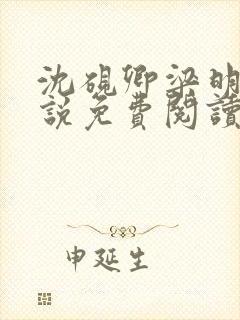 沈硯卿梁明
說免費閱讀
申延生